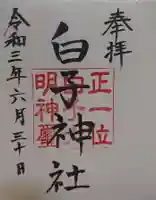 奉拝
正一位
白子神社
明神璽
令和三年六月三十日